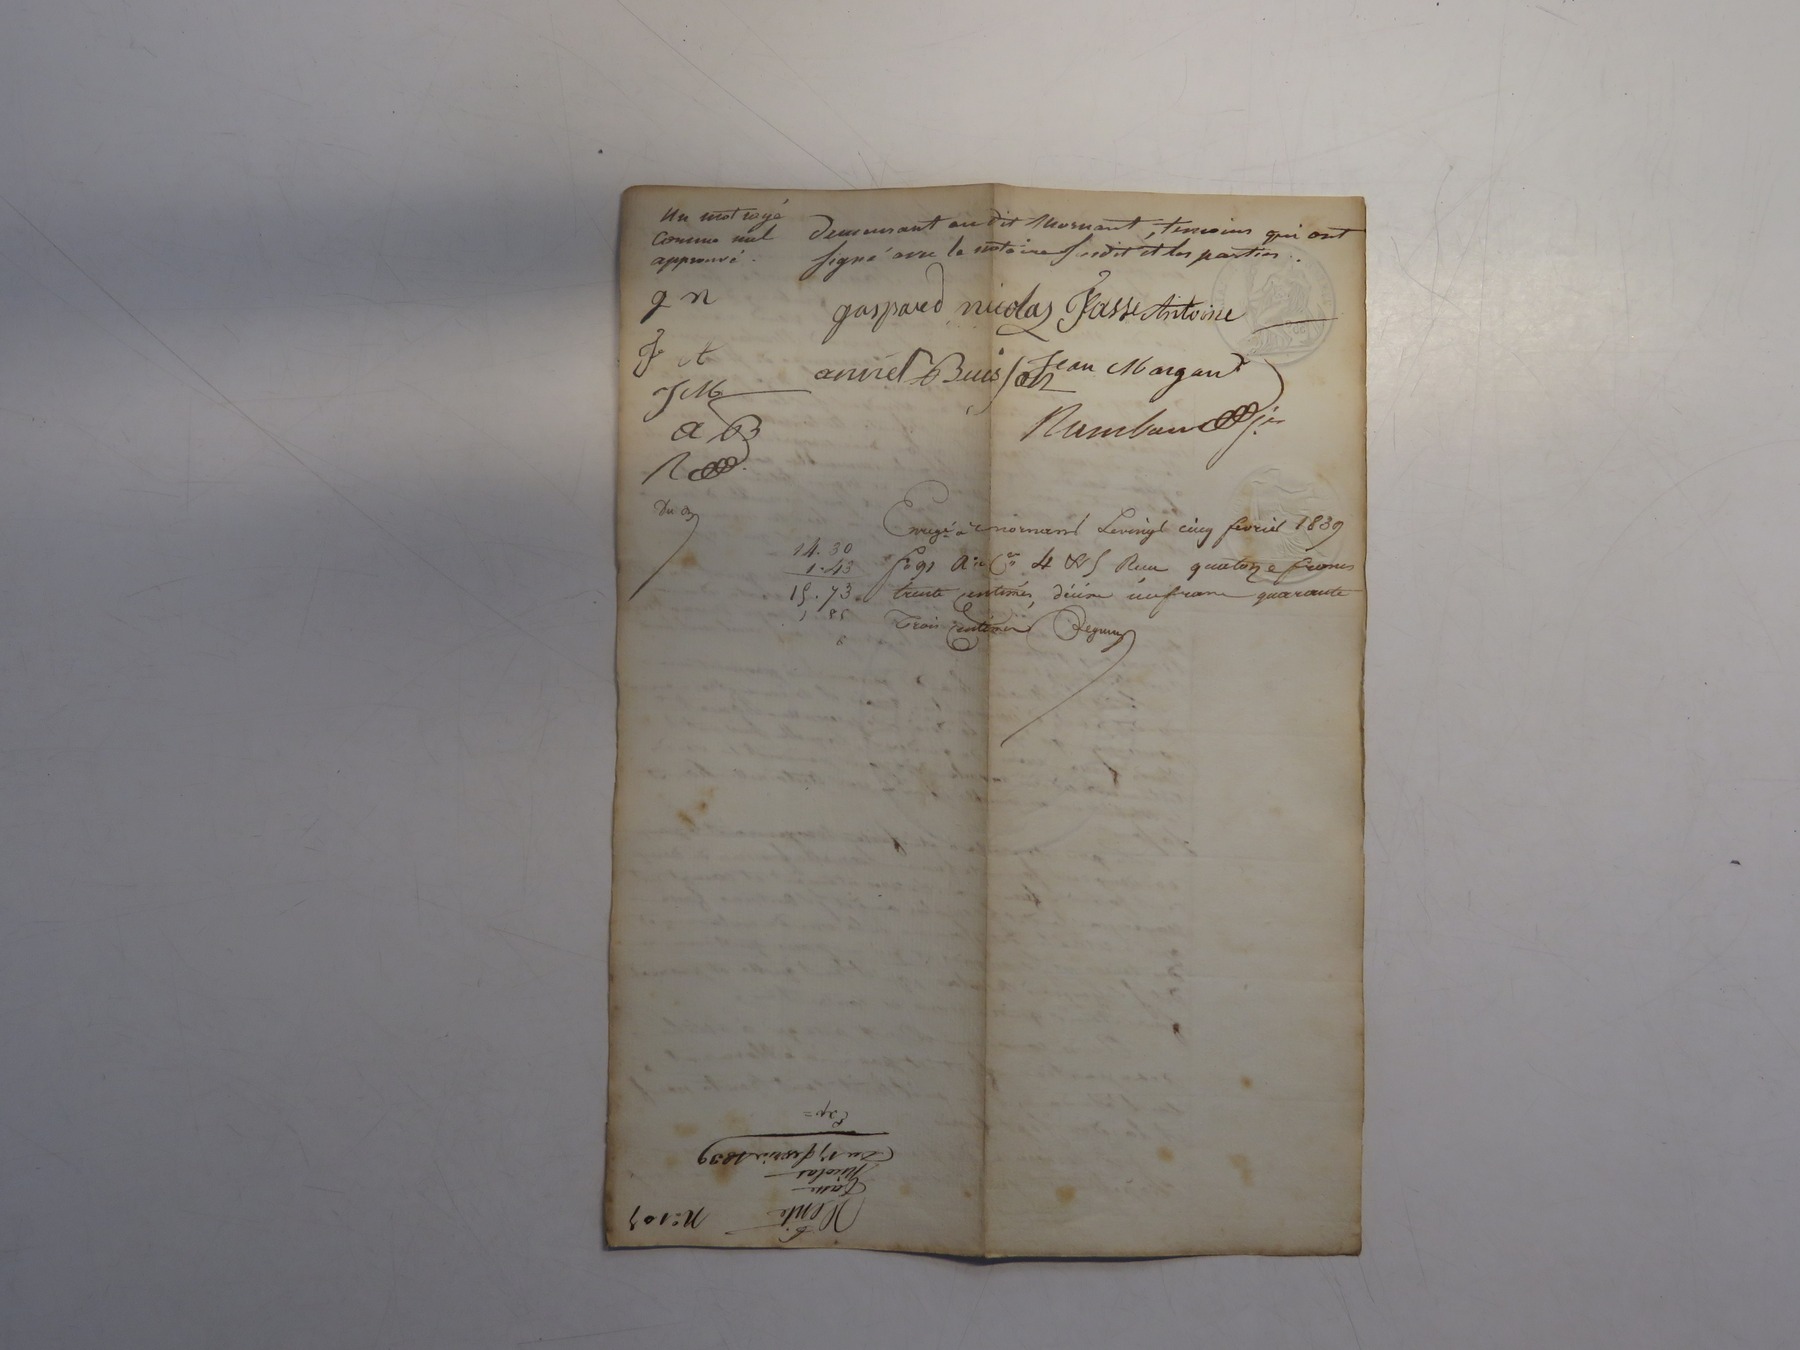 Un mot rayé
comme nul
approuvé.
g n
F A
J M
a B
R
demeurant au dit Mornant, temoins qui ont
signé avec le notaire susdit et les parties.
gaspard nicolas Fasse Antoine
annet Buisson Jean Margant
Rambaud
Du
Enregé à mornant Le vingt cinq fevrier 1839
14.30
1.43
15.73
fo 91 4 & 5 Reçu quatorze francs
trente centimes, décime un franc quarante
Trois centimes
Exp=
Du février 1839
Nicolas
Fasse
Vente